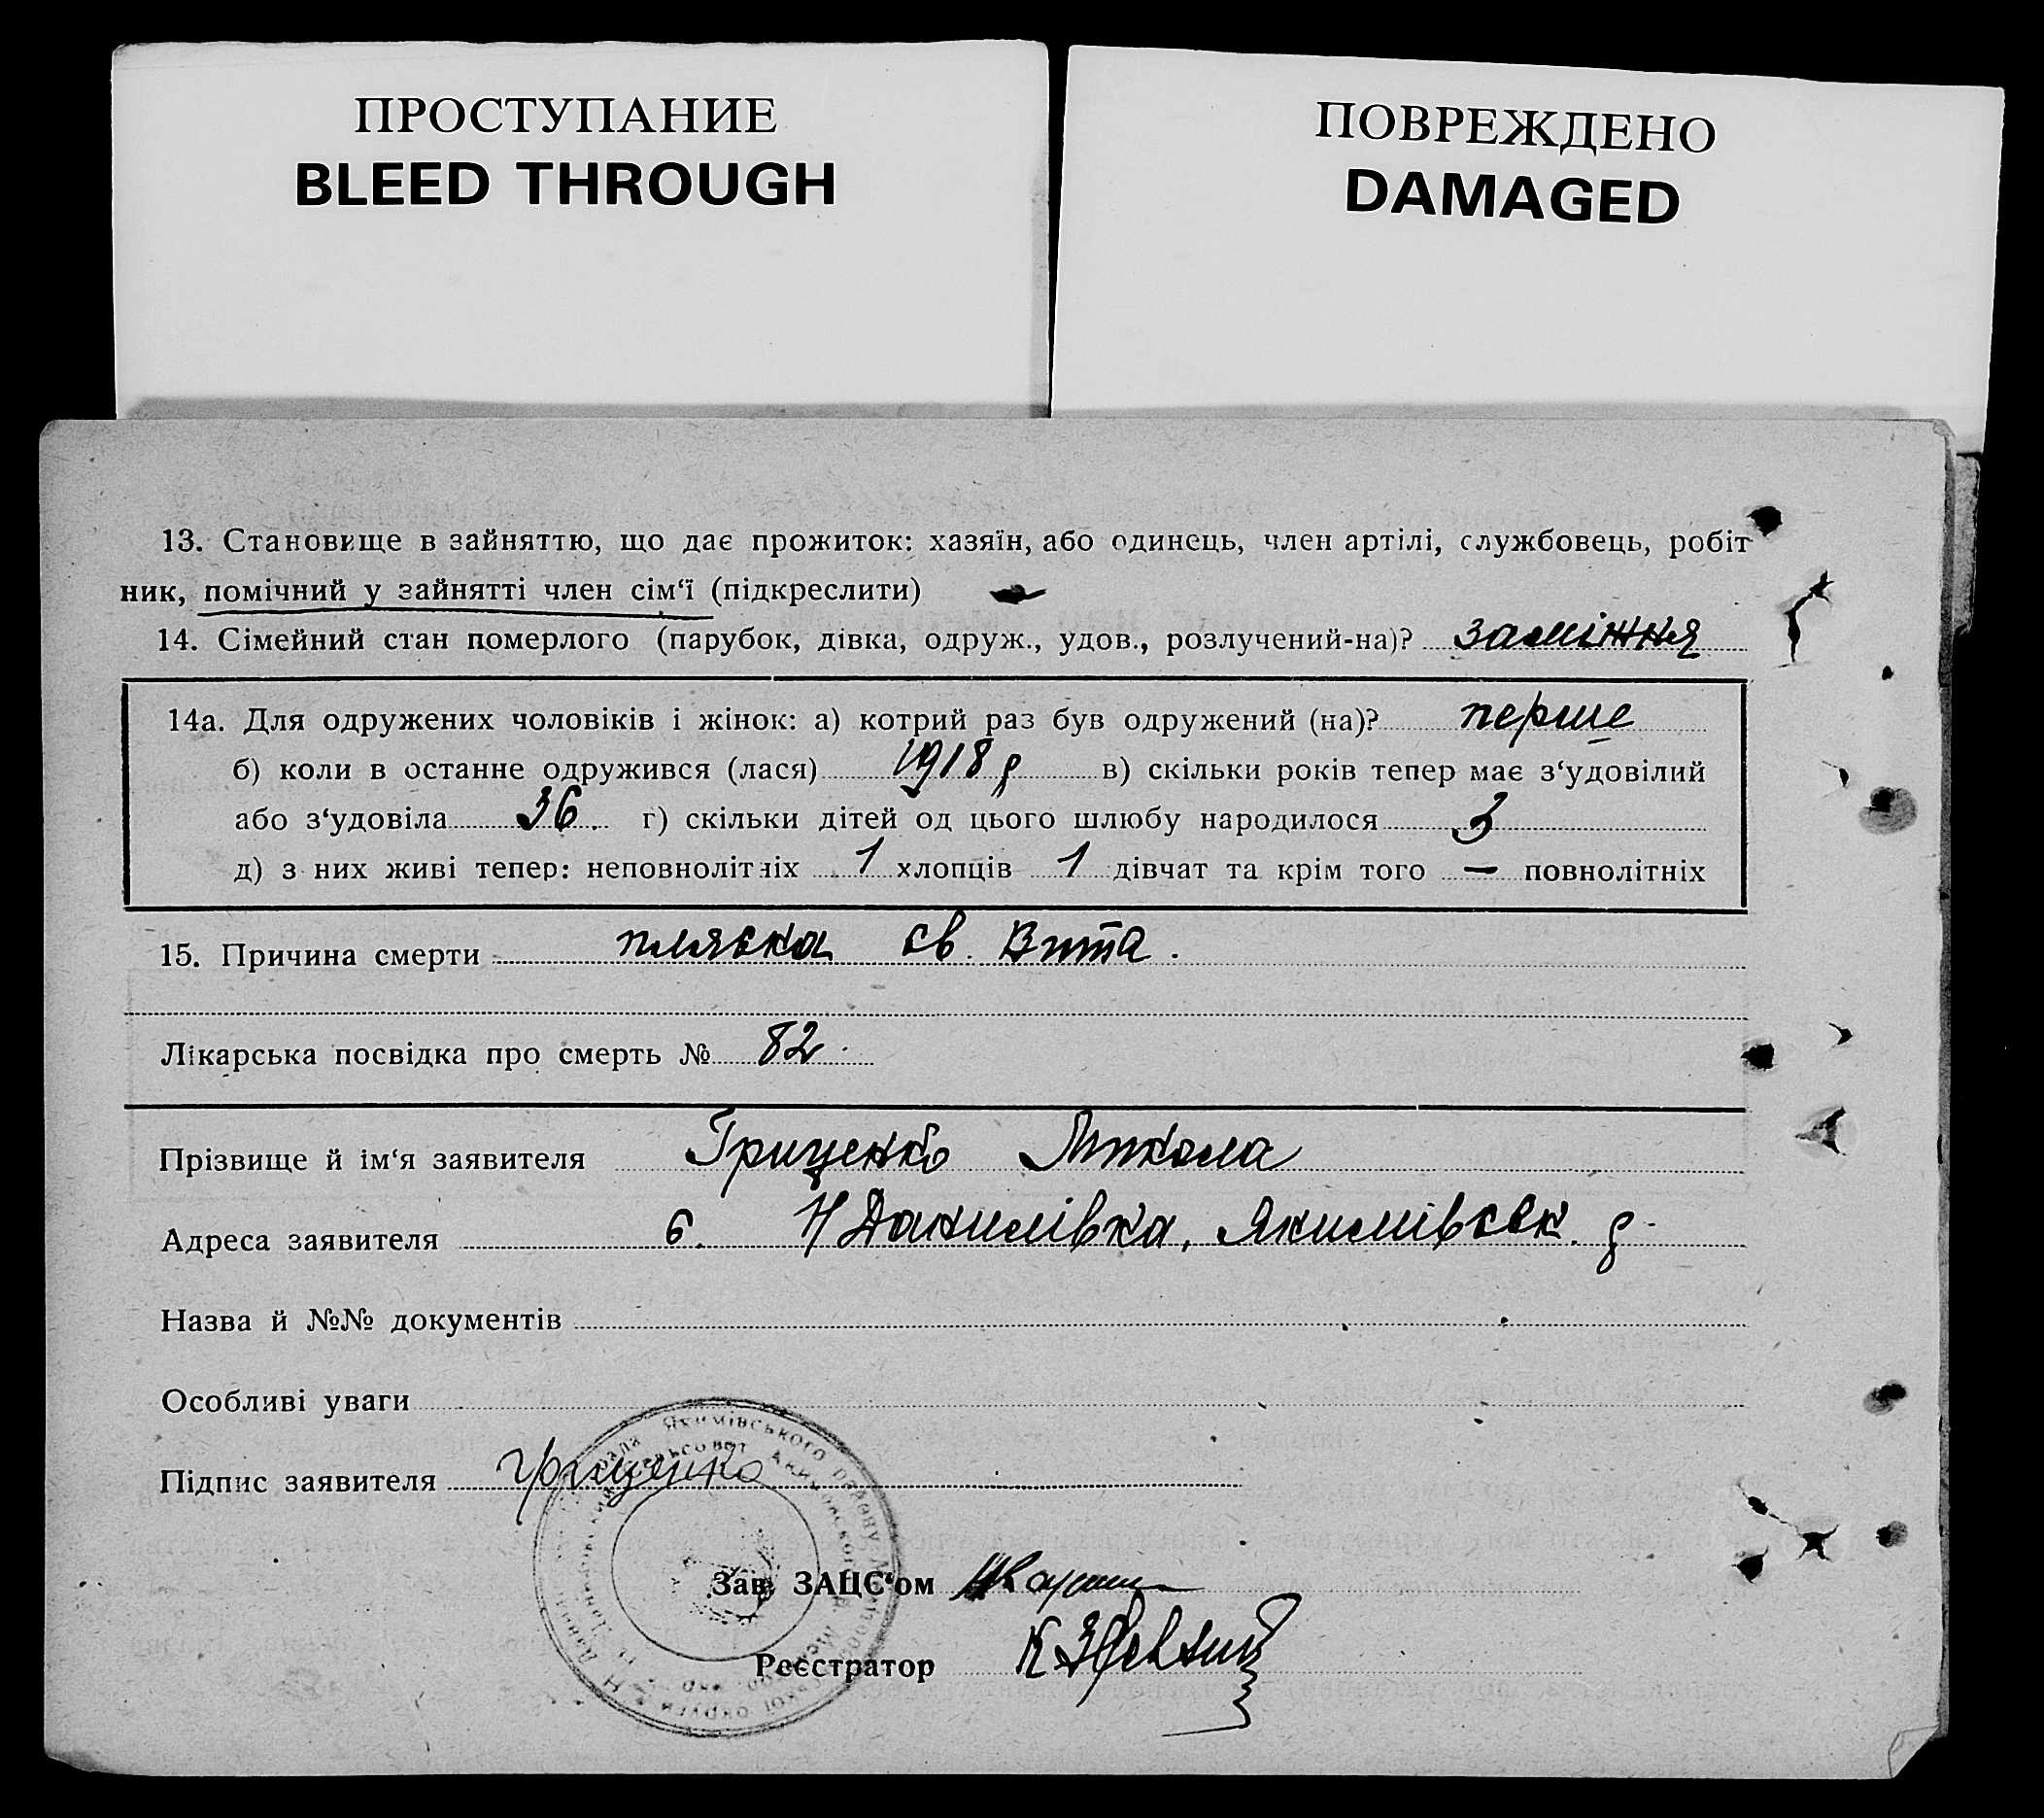 ПРОСТУПАНИЕ
BLEED THROUGH
ПОВРЕЖДЕНО
DAMAGED
13. Становище в зайняттю, що дає прожиток: хазяїн, або одинець, член артілі, службовець, робіт
ник, помічний у зайнятті член сім‘ї (підкреслити)
14. Сімейний стан померлого (парубок, дівка, одруж., удов., розлучений-на)? заміжня
14а. Для одружених чоловіків і жінок: а) котрий раз був одружений (на)? перше
б) коли в останне одружився (лася) 1918 р в) скільки років тепер має з‘удовілий
або з‘удовіла 36. г) скільки дітей од цього шлюбу народилося 3
д) з них живі тепер: неповнолітніх 1 хлопців 1 дівчат та крім того — повнолітніх
15. Причина смерти пляска св. Вита.
Лікарська посвідка про смерть № 82.
Прізвище й ім‘я заявителя Гриценко Микола
Адреса заявителя с. Н Данилівка, Якимівськ. р.
Назва й №№ документів
Особливі уваги
Підпис заявителя Гриценко
Якимівського району
Зав. ЗАЦС‘ом
Реєстратор